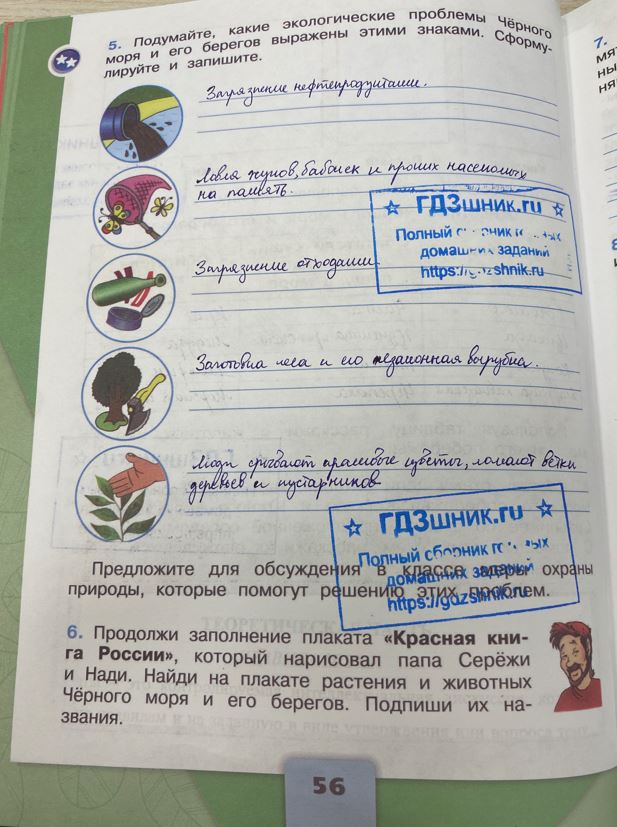 5. Подумайте, какие экологические проблемы Чёрного
моря и его берегов выражены этими знаками. Сформу-
лируйте и запишите.
Загрязнение нефтепродуктами.
Ловля жуков, бабочек и прочих насекомых
на память.
ГДЗшник.ru
Полный
домашних заданий
Загрязнение отходами
Заготовка леса и его незаконная вырубка.
Люди срывают красивые цветы, ломают ветки
деревьев и кустарников
ГДЗшник.ru
Полный сборник
домашних заданий
https://gdzshnik.ru
Предложите для обсуждения в классе меры охраны
природы, которые помогут решению этих проблем.
6. Продолжи заполнение плаката «Красная кни-
га России», который нарисовал папа Серёжи
и Нади. Найди на плакате растения и животных
Чёрного моря и его берегов. Подпиши их на-
звания.
56
7.
мя
ны
ня